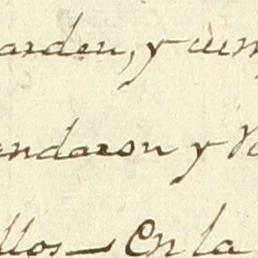 arden, y cum
andaron y V
llos— En la